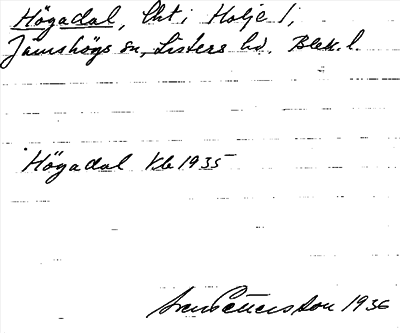 Högadal, lht i Holje 1,
Jämshögs sn, Listers hd. Blek. l.
Högadal Kb 1935
Sven Pettersson 1936